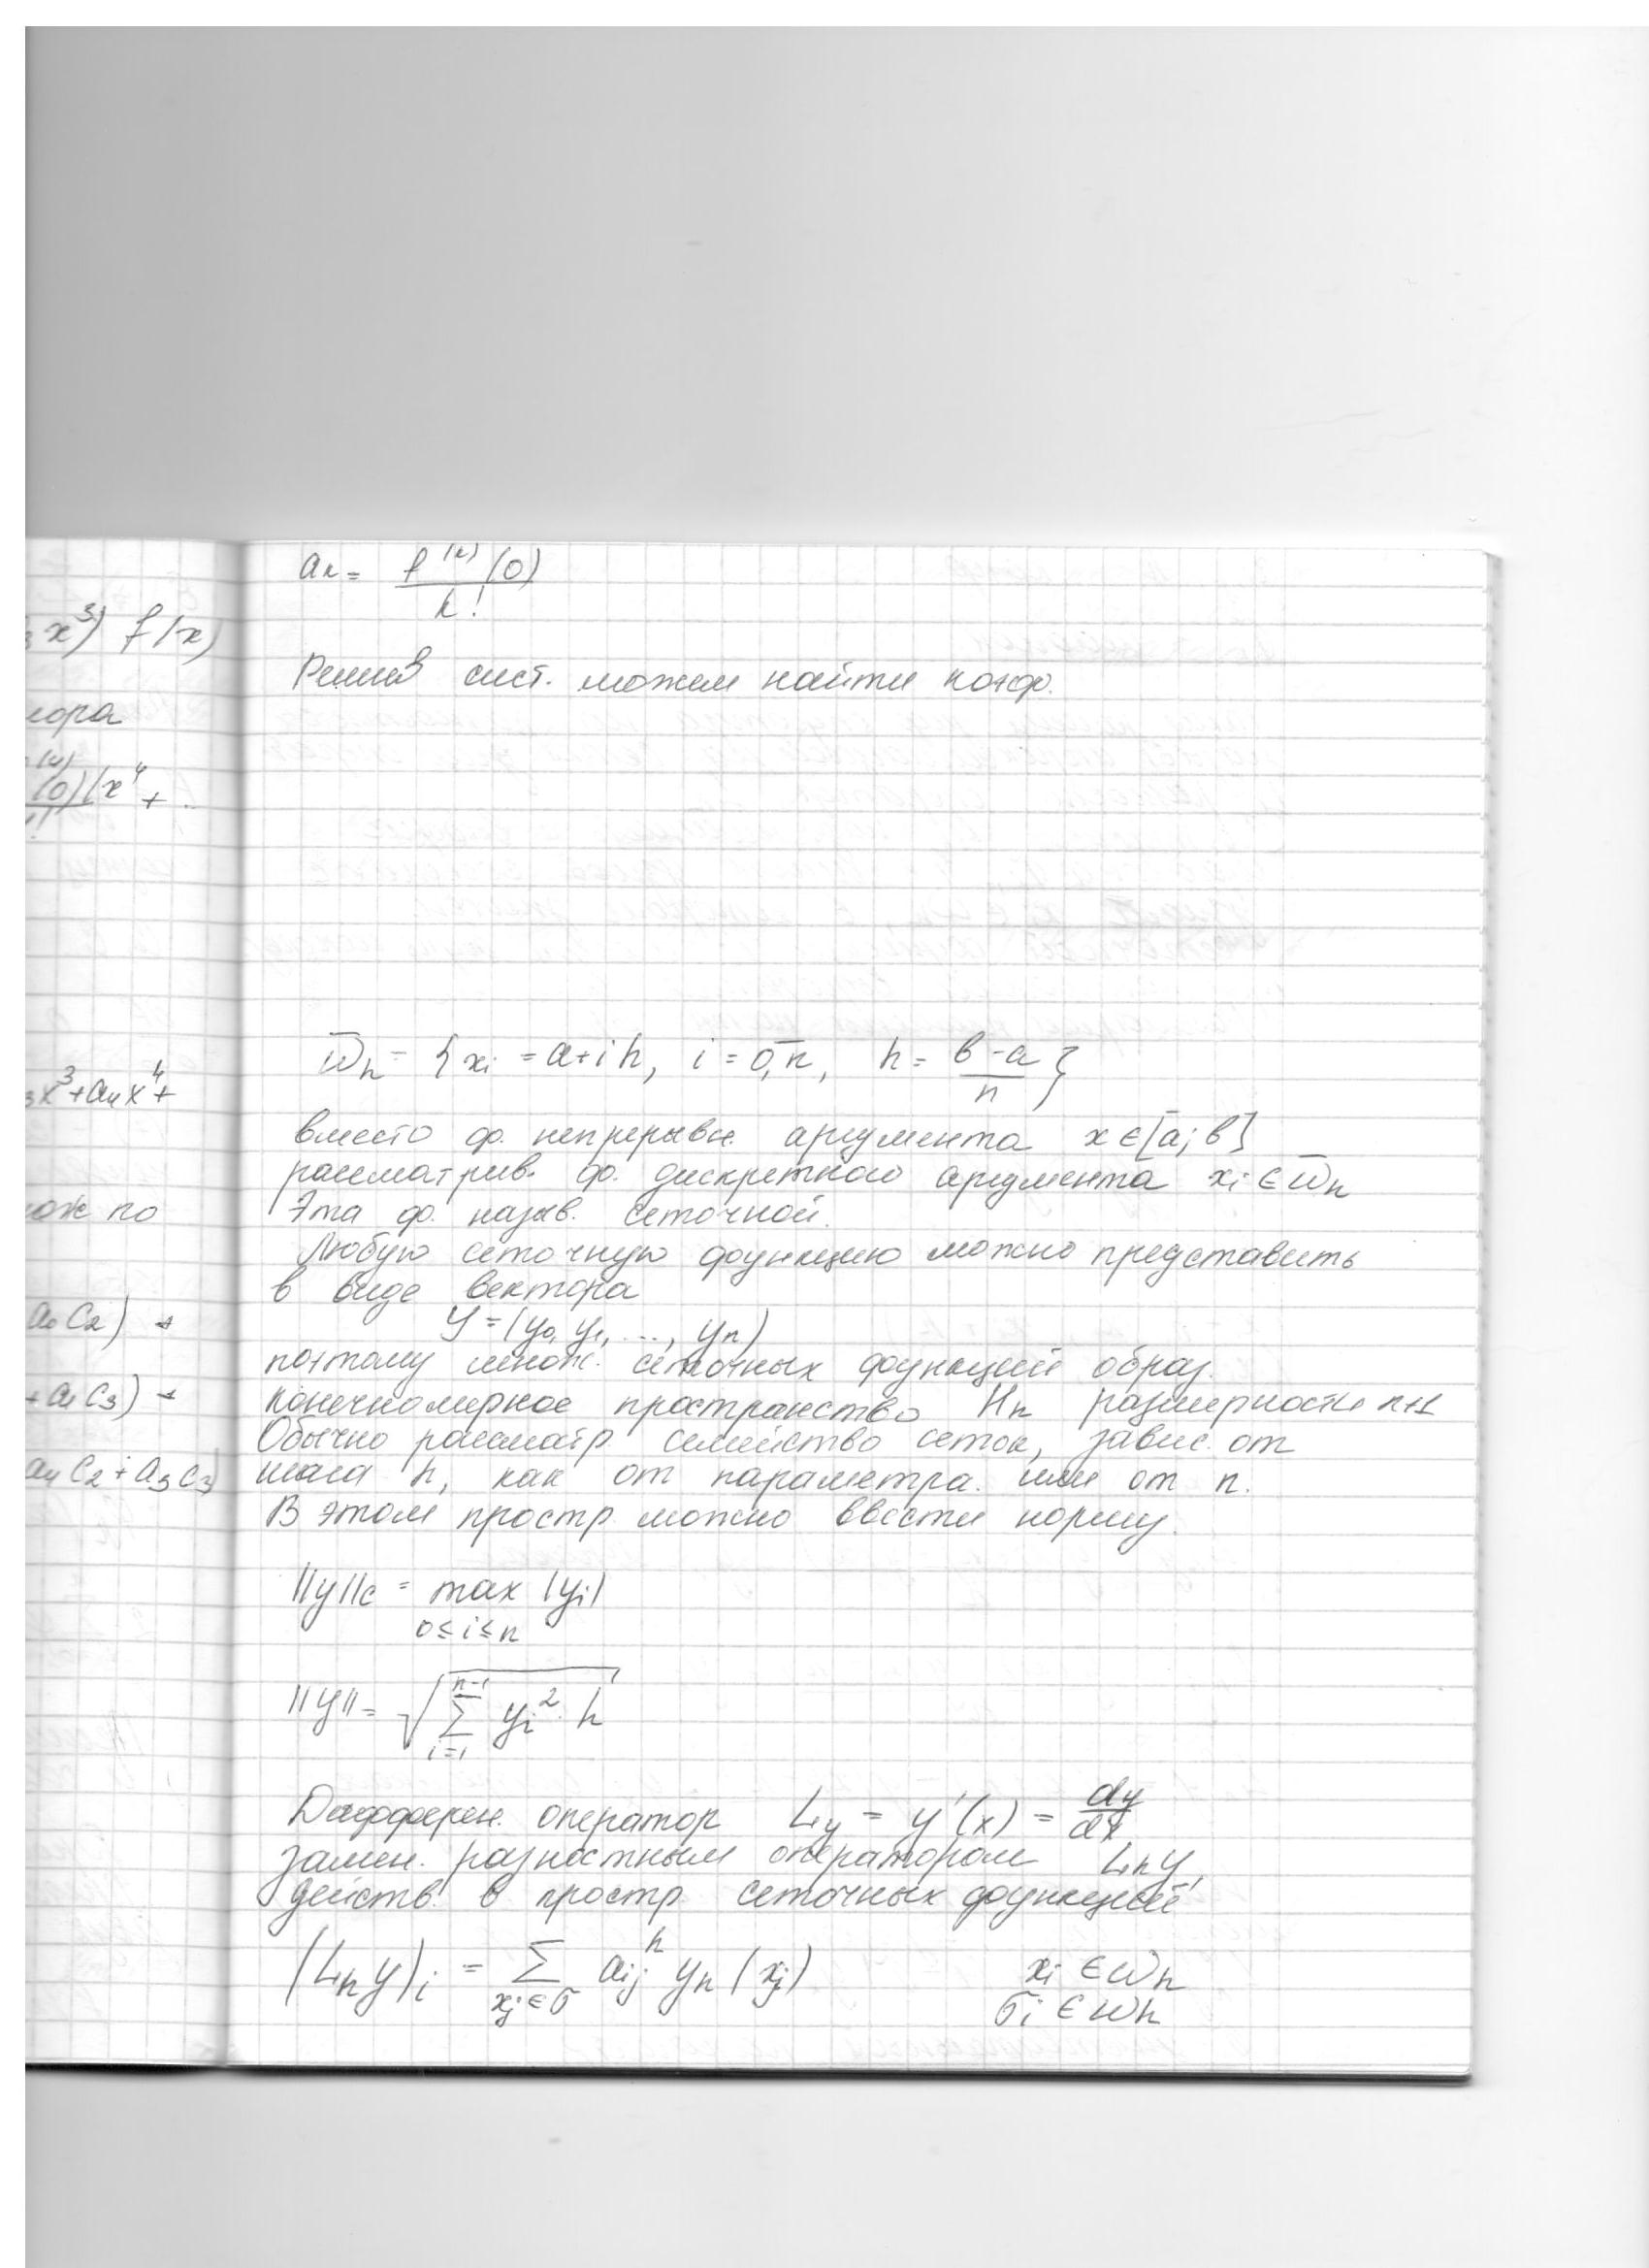 aₖ = f⁽ᵏ⁾(0) / k!
x³) f(x)
Решив сист. можем найти коэф.
лора
(0)(x⁴ + ..
ω̄ₕ = { xᵢ = a+ih, i = 0,n̄, h = (в-a)/n }
x³+a₄x⁴+
вместо ф. непрерывн. аргумента x ∈ [a; в]
рассматрив. ф. дискретного аргумента xᵢ ∈ ω̄ₕ
по
Эта ф. назыв. сеточной.
Любую сеточную функцию можно представить
в виде вектора
C₂) +
y = (y₀, y₁, ..., yₙ)
поэтому множ. сеточных функций образ.
+a₁C₃) +
конечномерное пространство Hₕ размерности n+1
Обычно рассматр. семейство сеток, завис. от
a₄C₂+a₃C₃)
шага h, как от параметра. или от n.
В этом простр. можно ввести норму.
||y||c = max |yᵢ|
0≤i≤n
||y|| = √(∑ᵢ₌₁ⁿ⁻¹ yᵢ²·h)
Дифферен. оператор Ly = y'(x) = dy/dx
замен. разностным оператором Lₕy,
действ. в простр. сеточных функций
(Lₕy)ᵢ = ∑ aᵢⱼʰ yₕ(xⱼ) xᵢ ∈ ωₕ
xⱼ∈σ σᵢ ∈ ωₕ